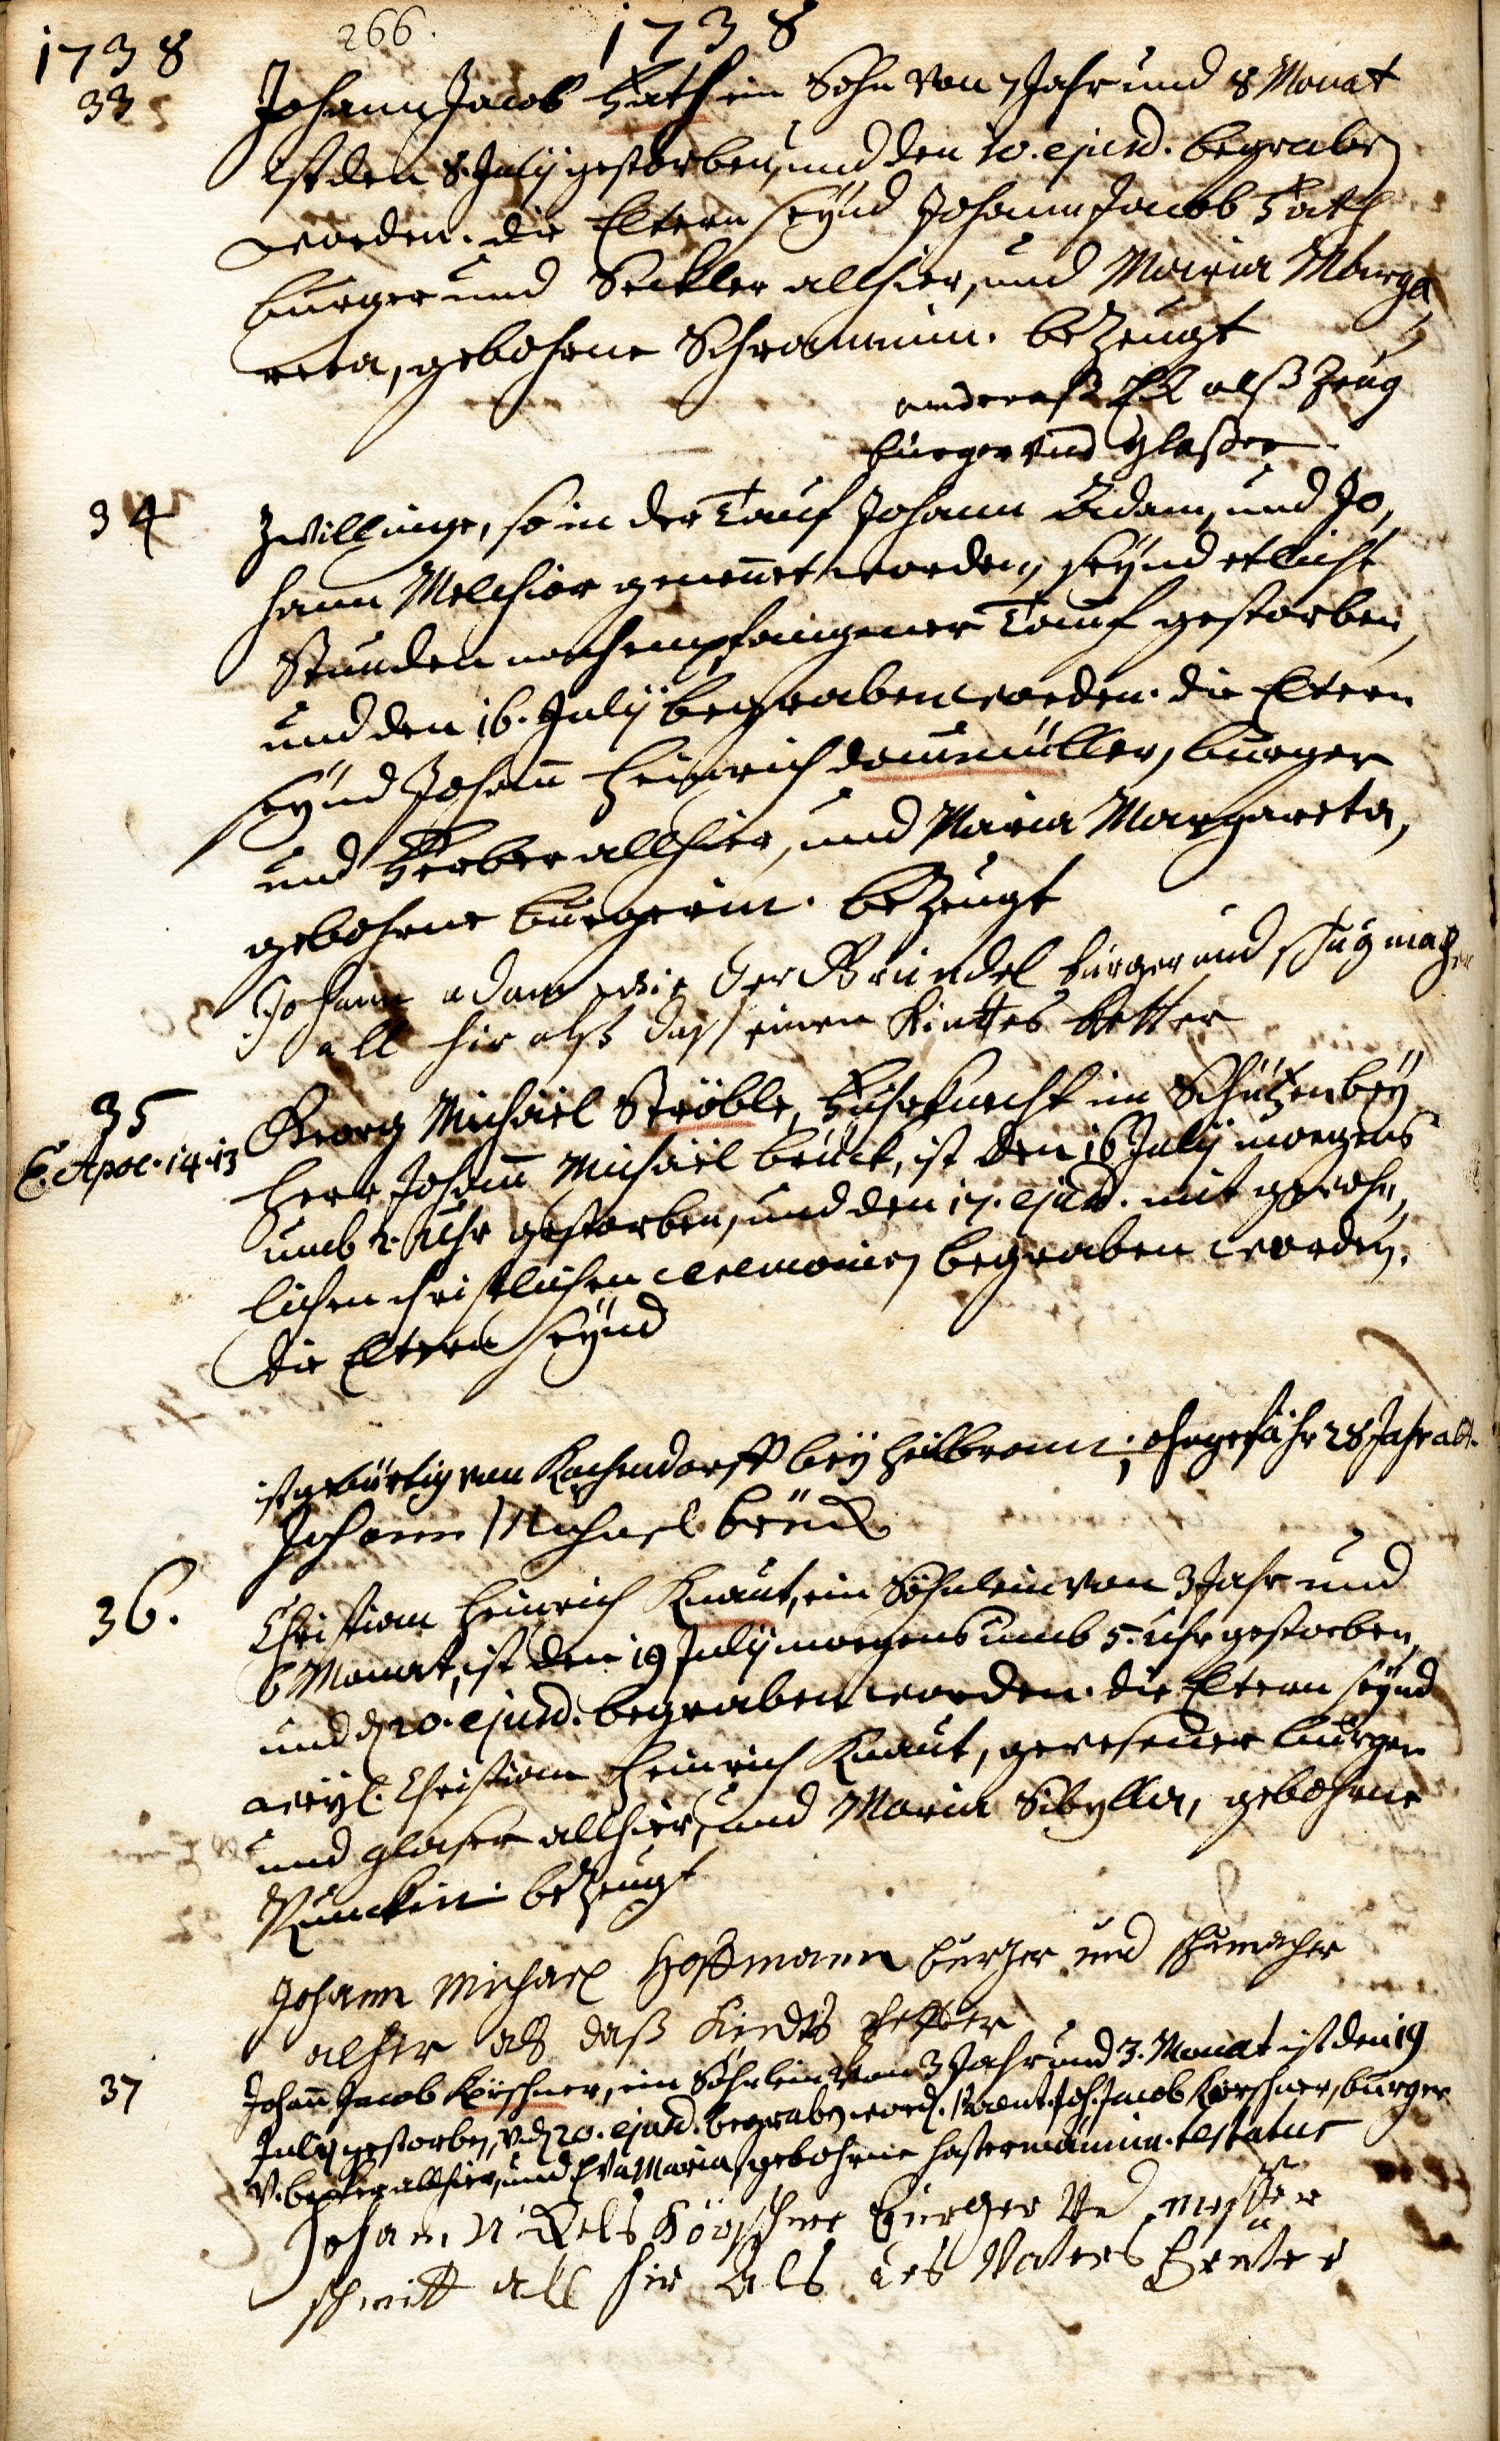 266.
1738 1738
33 Johann Jacob Hath ein Sohn von 7 Jahr und 8 Monat
ist den 8. Julij gestorben, und den 10. ejusd. begraben
worden. die Eltern seynd Johann Jacob Hath
burger und Seckler allhier, und Maria Marga,
reta, gebohrne Schrammin. bezeugt
andereas alß Zeug
burger vnd glaßer
34 Zwillinge, so in der Tauf Johann Adam, und Jo,
hann Melchior genennet worden, seynd etliche
Stunden nach empfangener Tauf gestorben,
und den 16. Julij begraben worden. die Eltern
seynd Johann Heinrich dommüller, burger
und Ferber allhier, und Maria Margareta,
gebohrne burgerin. bezeugt
Johann adam der burger und schugmacher
all hir alß daß einen Kintes Petter
35 Georg Michaël Ströble, Fuhrknecht im Schützen beÿ
E. Apoc. 14. 13 Herr Johann Michaël brück, ist den 16 Julij morgens
umb 2. Uhr gestorben, und den 17. ejusd. mit gewohn,
lichen christlichen ceremonien begraben worden.
die Eltern seynd
ist gebürtig von Kochendorff beÿ Heilbronn; ohngefähr 28 Jahr alt.
Johann Michael brück
36. Christian Heinrich Knaut, ein Söhnlein von 3 Jahr und
6 Monat, ist den 19 Julij morgens umb 5. Uhr gestorben,
und d 20. ejusd. begraben worden. die Eltern seynd
weyl. Christian Heinrich Knaut, gewesener burger
und glaser allhier, und Maria Sibylla, gebohrne
Kunckin. bezeugt
Johann Michael Hoffmann burger und schumacher
alhir als daß Kindts petter
37 Johann Jacob Körschner, ein Söhnlein von 3 Jahr und 3. Monat ist den 19
Julij gestorben, v. d 20. ejusd. begraben word. Parent. Joh. Jacob Körschner, burger
v. becker allhier, und Eva Maria, gebohrne Hastermännin. testatur
Johan Nickels Körschner Burger Vnd messer
schmitt all hir Als des Vaters Bruter